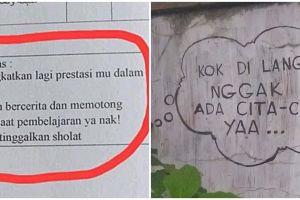 s :
katkan lagi prestasi mu dalam
n bercerita dan memotong
aat pembelajaran ya nak!
tinggalkan sholat
KOK DI LANG
NGGAK
ADA CITA-C
YAA ...